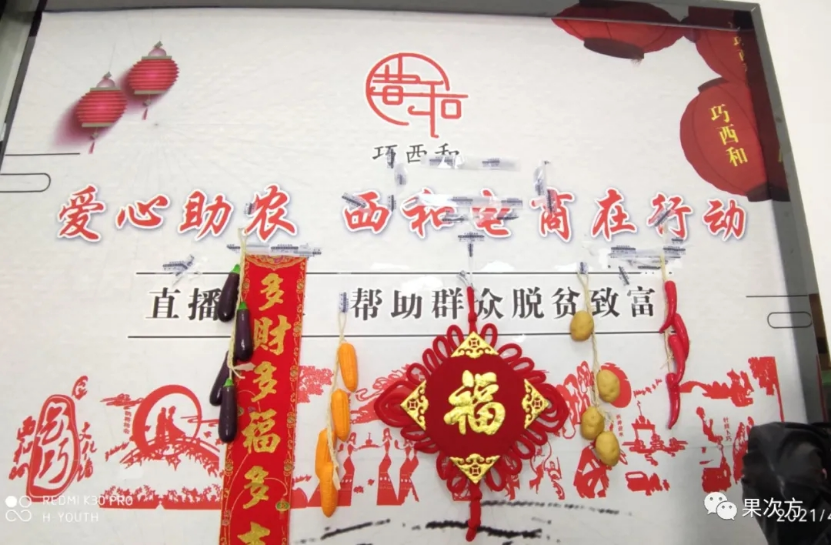 巧西和
巧西和
爱心助农 西和电商在行动
直播 帮助群众脱贫致富
多财多福多
福
乞巧
REDMI K30 PRO
H YOUTH
果次方
2021/4